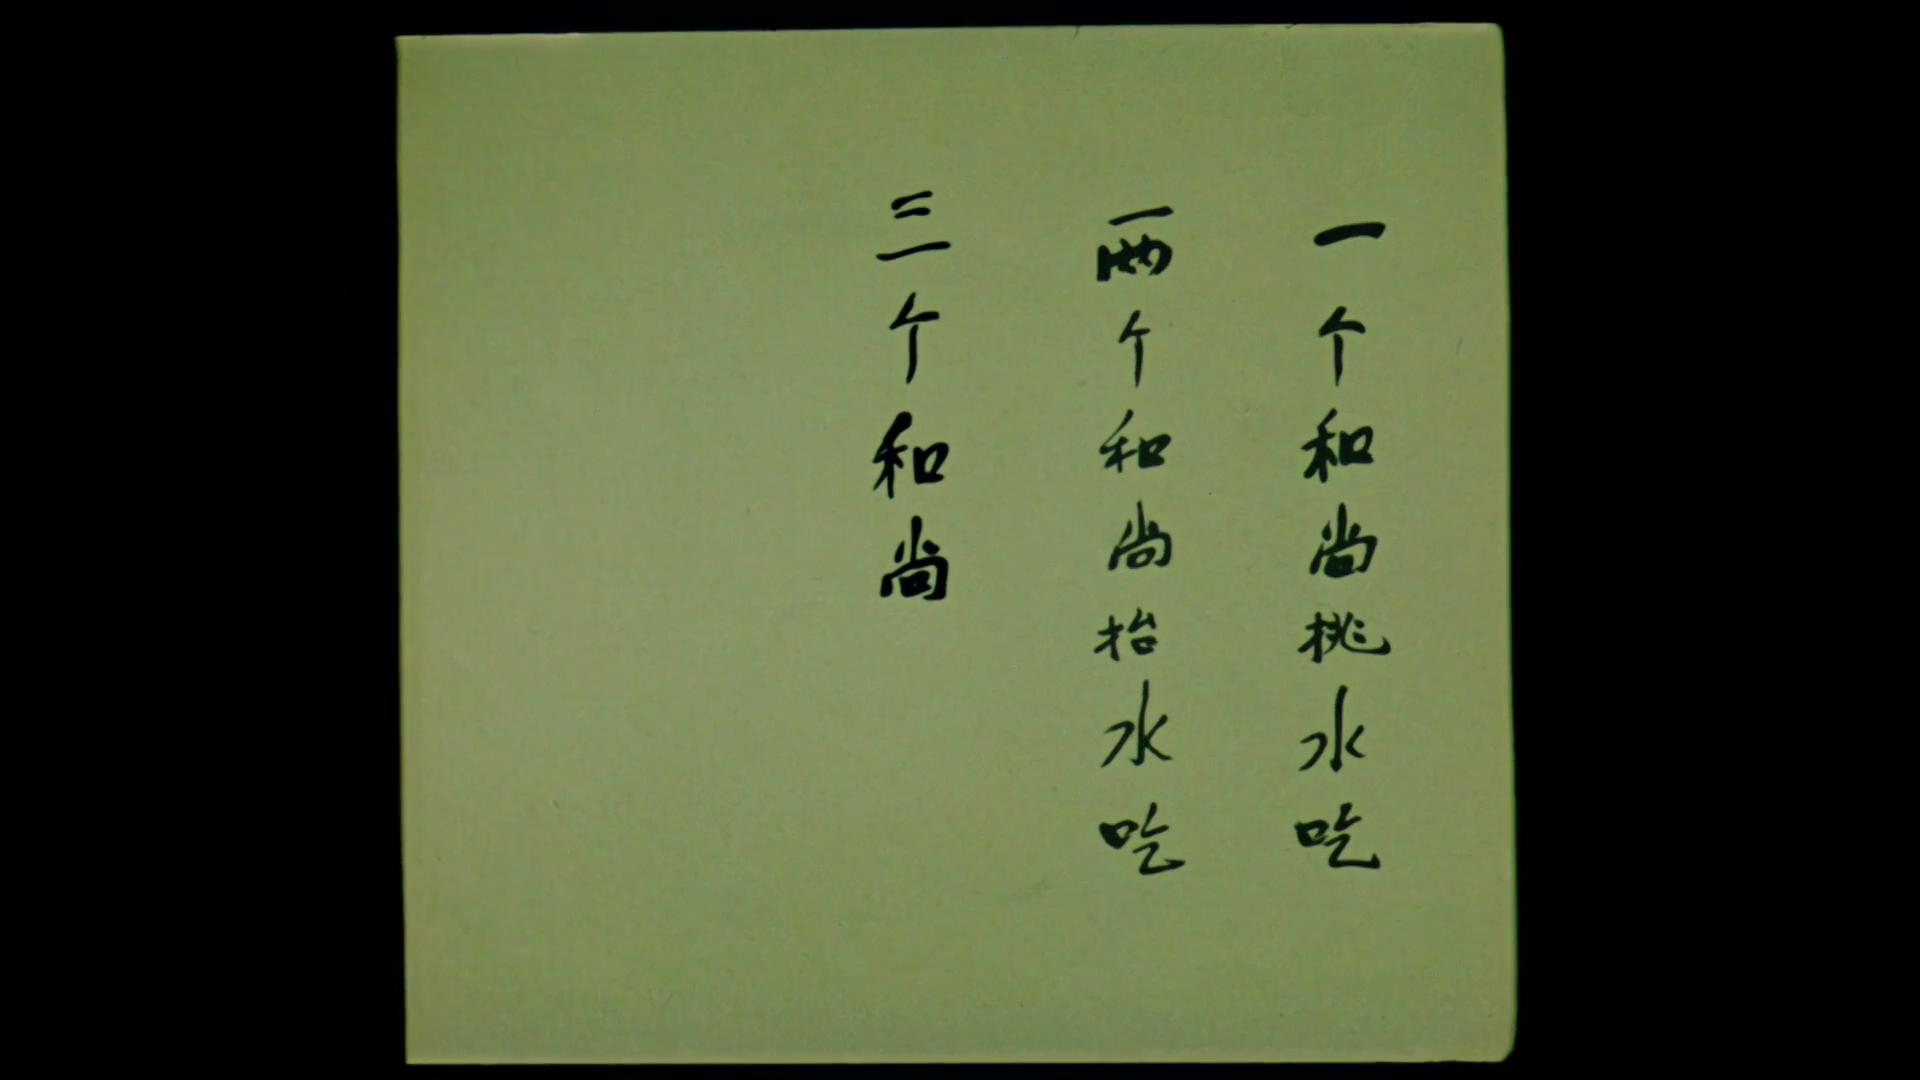 一个和尚挑水吃
两个和尚抬水吃
三个和尚